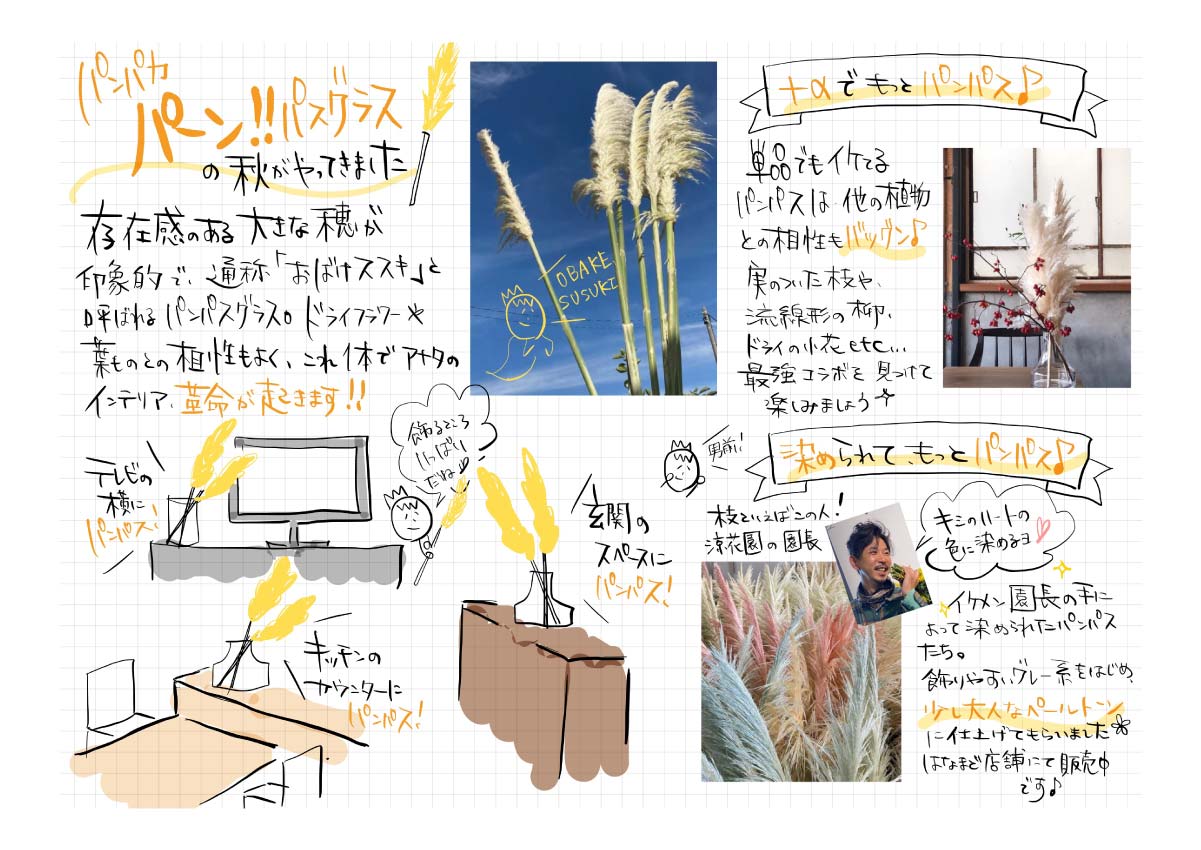 パンパカ
パーン!!パスグラス
の秋がやってきました
存在感のある大きな穂が
印象的で、通称「おばけススキ」と
呼ばれるパンパスグラス。ドライフラワーや
葉ものとの相性もよく、これ1体でアナタの
インテリア、革命が起きます!!
OBAKE
SUSUKI
テレビの
横に
パンパス!
飾るところ
いっぱい
だね
玄関の
スペースに
パンパス!
キッチンの
カウンターに
パンパス!
+αでもっとパンパス♪
単品でもイケてる
パンパスは他の植物
との相性もバツグン♪
実のついた枝や、
流線形の柳、
ドライの小花etc...
最強コラボを見つけて
楽しみましょう
染められて、もっとパンパス♪
男前!
枝といえばこの人!
涼花園の園長
キミのハートの
色に染めるヨ
イケメン園長の手に
よって染められたパンパス
たち。
飾りやすいグレー系をはじめ、
少し大人なペールトーン
に仕上げてもらいました
はなまど店舗にて販売中
です♪